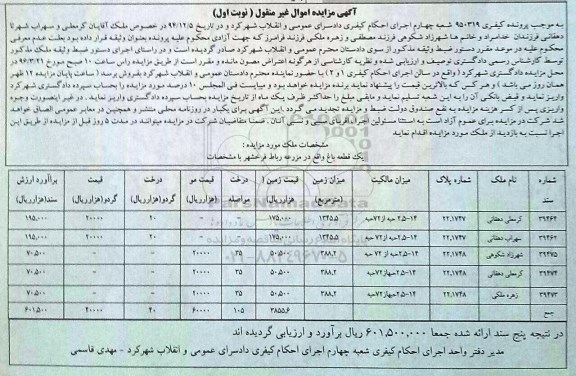 آگهی مزایده اموال غیر منقول ( نوبت اول)
به موجب پرونده کیفری ۹۵۰۳۱۹ شعبه چهارم اجرای احکام کیفری دادسرای عمومی و انقلاب شهرکرد و در تاریخ ۹۴/۱۲/۵ در خصوص ملک آقایان کرمعلی و سهراب شهرتا
دهقانی فرزندان خدامراد و خانم ها شهرزاد شکوهی فرزند مصطفی و زهره ملکی فرزند فرامرز که جهت آزادی محکوم علیه پرونده بعنوان وثیقه قرار داده بود بعلت عدم معرفی
محکوم علیه در موعد مقرر دستور ضبط وثیقه مذکور از سوی دادستان محترم عمومی و انقلاب شهرکرد صادر گردیده است و در راستای اجرای دستور ضبط وثیقه ملک مذکور
توسط کارشناس رسمی دادگستری توصیف و ارزیابی شده و نظریه کارشناسی از هرگونه اعتراض مصون مانده و مقرر است از طریق مزایده راس ساعت ۱۰ صبح مورخ ۹۶/۳/۲۱ در
محل مزایده دادگستری شهرکرد ( واقع در سالن اجرای احکام کیفری ۱ و ۲ ) با حضور نماینده محترم دادستان عمومی و انقلاب شهرکرد بفروش برسد ( ساعت پایان مزایده ۱۲ ظهر
همان روز می باشد ) و هر کس که بالاترین قیمت را پیشنهاد نماید برنده مزایده خواهد بود و میبایست فی المجلس ۱۰ درصد مورد مزایده را بحساب سپرده دادگستری شهرکرد
واریز نماید و قبض بانکی آن را به این شعبه تسلیم نماید و مابقی مبلغ را حداکثر ظرف یک ماه از تاریخ مزایده بحساب سپرده دادگستری واریز نماید . در غیر اینصورت وجوه
واریزی پس از کسر هزینه مزایده به نفع صندوق دولت ضبط و مزایده تجدید می گردد . این آگهی برای یکبار در روزنامه محلی منتشر و همچنین در معابر عمومی الصاق خواهد
شد شرکت در مزایده برای عموم آزاد است به استثنا مسئولین اجرا، اقربای نسبی و سببی آنان . ضمنا متقاضیان شرکت در مزایده میتوانند در مدت ۵ روز قبل از مزایده از طریق این
اجرا نسبت به بازدید از ملک مورد مزایده اقدام نمایند
مشخصات ملک مورد مزایده :
یک قطعه باغ واقع در مزرعه رباط فرخشهر با مشخصات
شماره سند | نام ملک | شماره پلاک | میزان مالکیت | میزان زمین (مترمربع) | قیمت زمین (هزارریال) | درخت مو اصله | قیمت مو (هزارریال) | درخت گردو | قیمت گردو(هزارریال) | برآورد ارزش سند(هزارریال)
۳۹۴۶۴ | کرمعلی دهقانی | ۲۲,۱۷۴۷ | ۲,۵-۱۴ حبه از ۷۲ حبه | ۱۳۴۵,۵ | ۱۷۵,۰۰۰ | - | - | ۲۰ | ۲۰۰۰۰ | ۱۹۵,۰۰۰
۳۹۴۶۲ | سهراب دهقانی | ۲۲,۱۷۴۷ | ۲,۵-۱۴ حبه از ۷۲ حبه | ۱۳۴۵,۵ | ۱۷۵,۰۰۰ | - | - | ۲۰ | ۲۰۰۰۰ | ۱۹۵,۰۰۰
۳۹۴۷۵ | شهرزاد شکوهی | ۲۲,۱۷۴۸ | ۲,۵-۱۴ حبه از ۷۲ حبه | ۳۸۸,۲ | ۵۰,۵۰۰ | ۳۵ | ۲۰۰۰۰ | - | - | ۷۰,۵۰۰
۳۹۴۷۴ | کرمعلی دهقانی | ۲۲,۱۷۴۸ | ۲,۵-۱۴ حبه از ۷۲ حبه | ۳۸۸,۲ | ۵۰,۵۰۰ | ۳۵ | ۲۰۰۰۰ | - | - | ۷۰,۵۰۰
۳۹۴۷۳ | زهره ملکی | ۲۲,۱۷۴۸ | ۲,۵-۱۴ حبه از ۷۲ حبه | ۳۸۸,۲ | ۵۰,۵۰۰ | ۳۵ | ۲۰۰۰۰ | - | - | ۷۰,۵۰۰
جمع | ۳۸۵۵,۶ | ۱۰۵ | ۶۰۰۰۰ | ۴۰ | ۲۰۰۰۰ | ۶۰۱,۵۰۰
در نتیجه پنج سند ارائه شده جمعا ۶۰۱,۵۰۰,۰۰۰ ریال برآورد و ارزیابی گردیده اند
مدیر دفتر واحد اجرای احکام کیفری شعبه چهارم اجرای احکام کیفری دادسرای عمومی و انقلاب شهرکرد - مهدی قاسمی